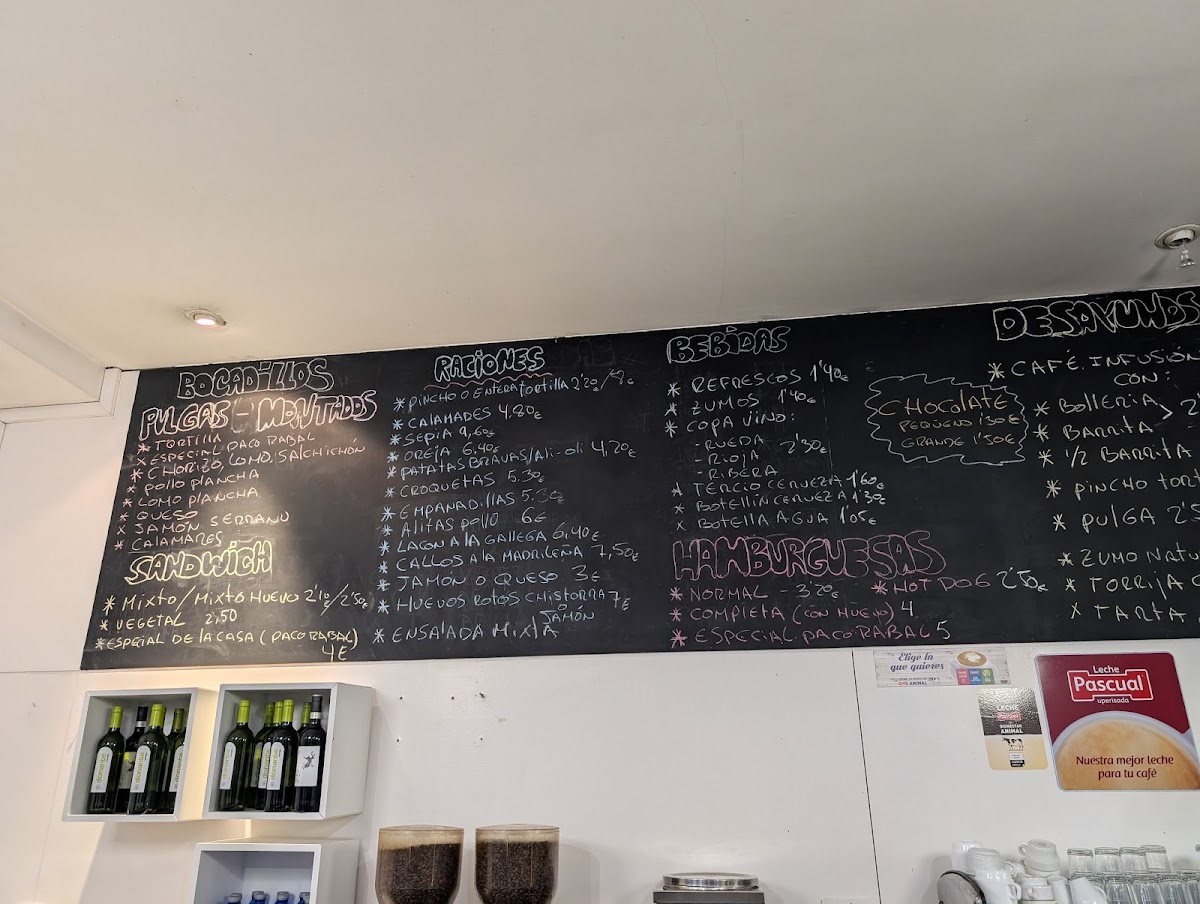 BOCADILLOS
PULGAS - MONTADOS
* TORTILLA
* ESPECIAL PACO RABAL
* CHORIZO, LOMO, SALCHICHÓN
* POLLO PLANCHA
* LOMO PLANCHA
* QUESO
* JAMÓN SERRANO
* CALAMARES
SANDWICH
* MIXTO/MIXTO HUEVO 2'10/2'50€
* VEGETAL 2,50
* ESPECIAL DE LA CASA (PACO RABAL)
4€
RACIONES
* PINCHO O ENTERA TORTILLA 2'20/
* CALAMADES 4,80€
* SEPIA 9,60€
* OREJA 6,40€
* PATATAS BRAVAS/ALI-OLI 4,20€
* CROQUETAS 5.30€
* EMPANADILLAS 5.30€
* ALITAS POLLO 6€
* LACON A LA GALLEGA 6,40€
* CALLOS A LA MADRILEÑA 7,50€
* JAMÓN O QUESO 3€
* HUEVOS ROTOS CHISTORRA 7€
JAMÓN
* ENSALADA MIXTA
BEBIDAS
* REFRESCOS 1'40€
* ZUMOS 1'40€
* COPA VINO:
- RUEDA
- RIOJA - 2'30€
- RIBERA
* TERCIO CERVEZA 1'60€
* BOTELLIN CERVEZA 1'30€
* BOTELLA AGUA 1'05€
HAMBURGUESAS
* NORMAL - 3'20€
* HOT DOG 2'50€
* COMPLETA (CON HUEVO) 4
* ESPECIAL PACO RABAL 5
CHOCOLATE
PEQUEÑO 1'30€
GRANDE 1'50€
DESAYUNOS
* CAFÉ. INFUSIÓN
CON:
* BOLLERIA
* BARRITA
* 1/2 BARRITA
* PINCHO TORT
* PULGA
* ZUMO NATU
* TORRIJA
* TARTA
Elige la
que quieres
LECHE
Pascual
BIENESTAR
ANIMAL
Leche
Pascual
uperisada
Nuestra mejor leche
para tu café